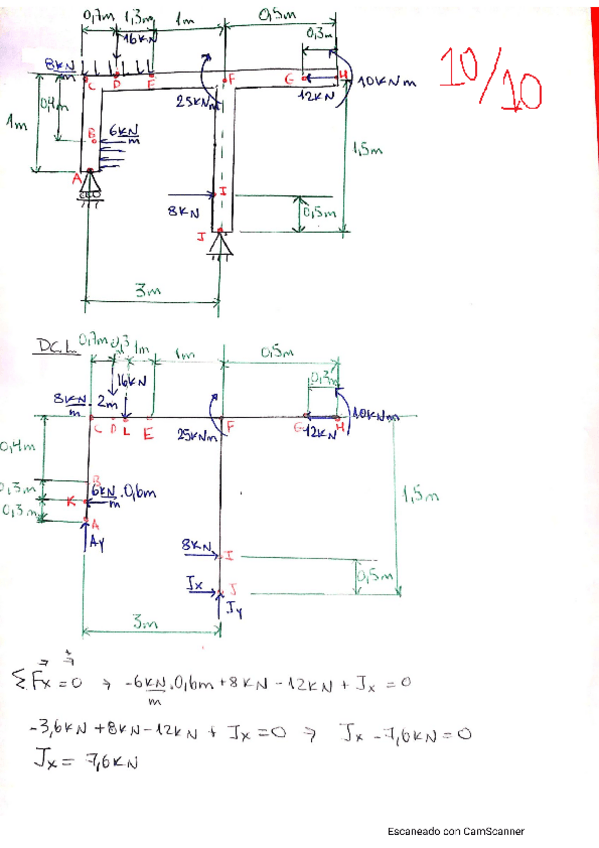 0,7m 1,3m 1m 0,5m
16KN 0,3m
8KN/m C D E F G H 10KNm
25KNm 12KN
0,4m
1m B 6KN/m
A
1,5m
I
8KN 0,5m
J
3m
10/10
D.C.L. 0,7m 0,3 1m 1m 0,5m
16KN 0,3m
8KN/m . 2m 10KNm
C D L E 25KNm F G 12KN H
0,4m
B
0,3m 6KN/m .0,6m
K
0,3m A 1,5m
Ay 8KN I
Jx J 0,5m
Jy
3m
ΣFx = 0 → -6KN/m . 0,6m + 8KN - 12KN + Jx = 0
-3,6KN + 8KN - 12KN + Jx = 0 ⇒ Jx - 7,6KN = 0
Jx = 7,6KN
Escaneado con CamScanner